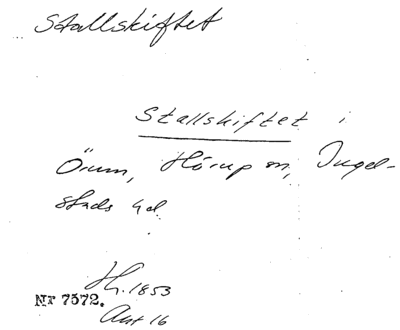 Stallskiftet
Stallskiftet i
Örum, Hörup sn, Ingel-
stads hd.
Hz. 1853
Nr 7572.
Akt 16